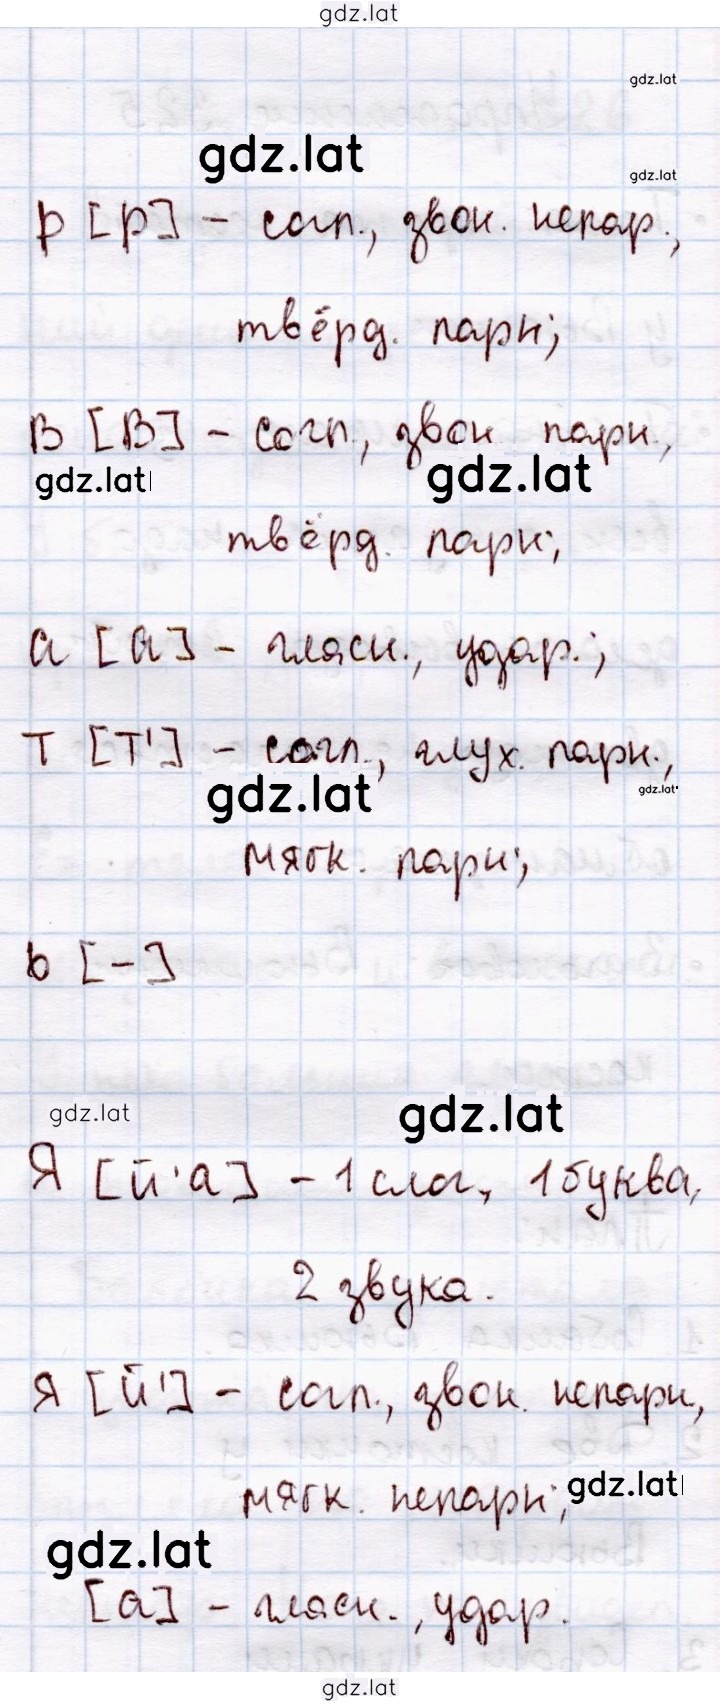 gdz.lat
gdz.lat
gdz.lat
gdz.lat
р [р] - согл., звон. непар.,
твёрд. парн;
в [в] - согл., звон. парн.,
gdz.lat
gdz.lat
твёрд. парн;
а [а] - гласн., удар.;
т [т'] - согл., глух. парн.,
gdz.lat
gdz.lat
мягк. парн;
ь [-]
gdz.lat
gdz.lat
Я [й'а] - 1 слог, 1 буква,
2 звука.
я [й'] - согл., звон. непарн,
мягк. непарн;
gdz.lat
gdz.lat
[а] - гласн., удар.
gdz.lat